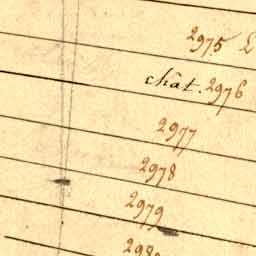 2975
chât. 2976
2977
2978
2979